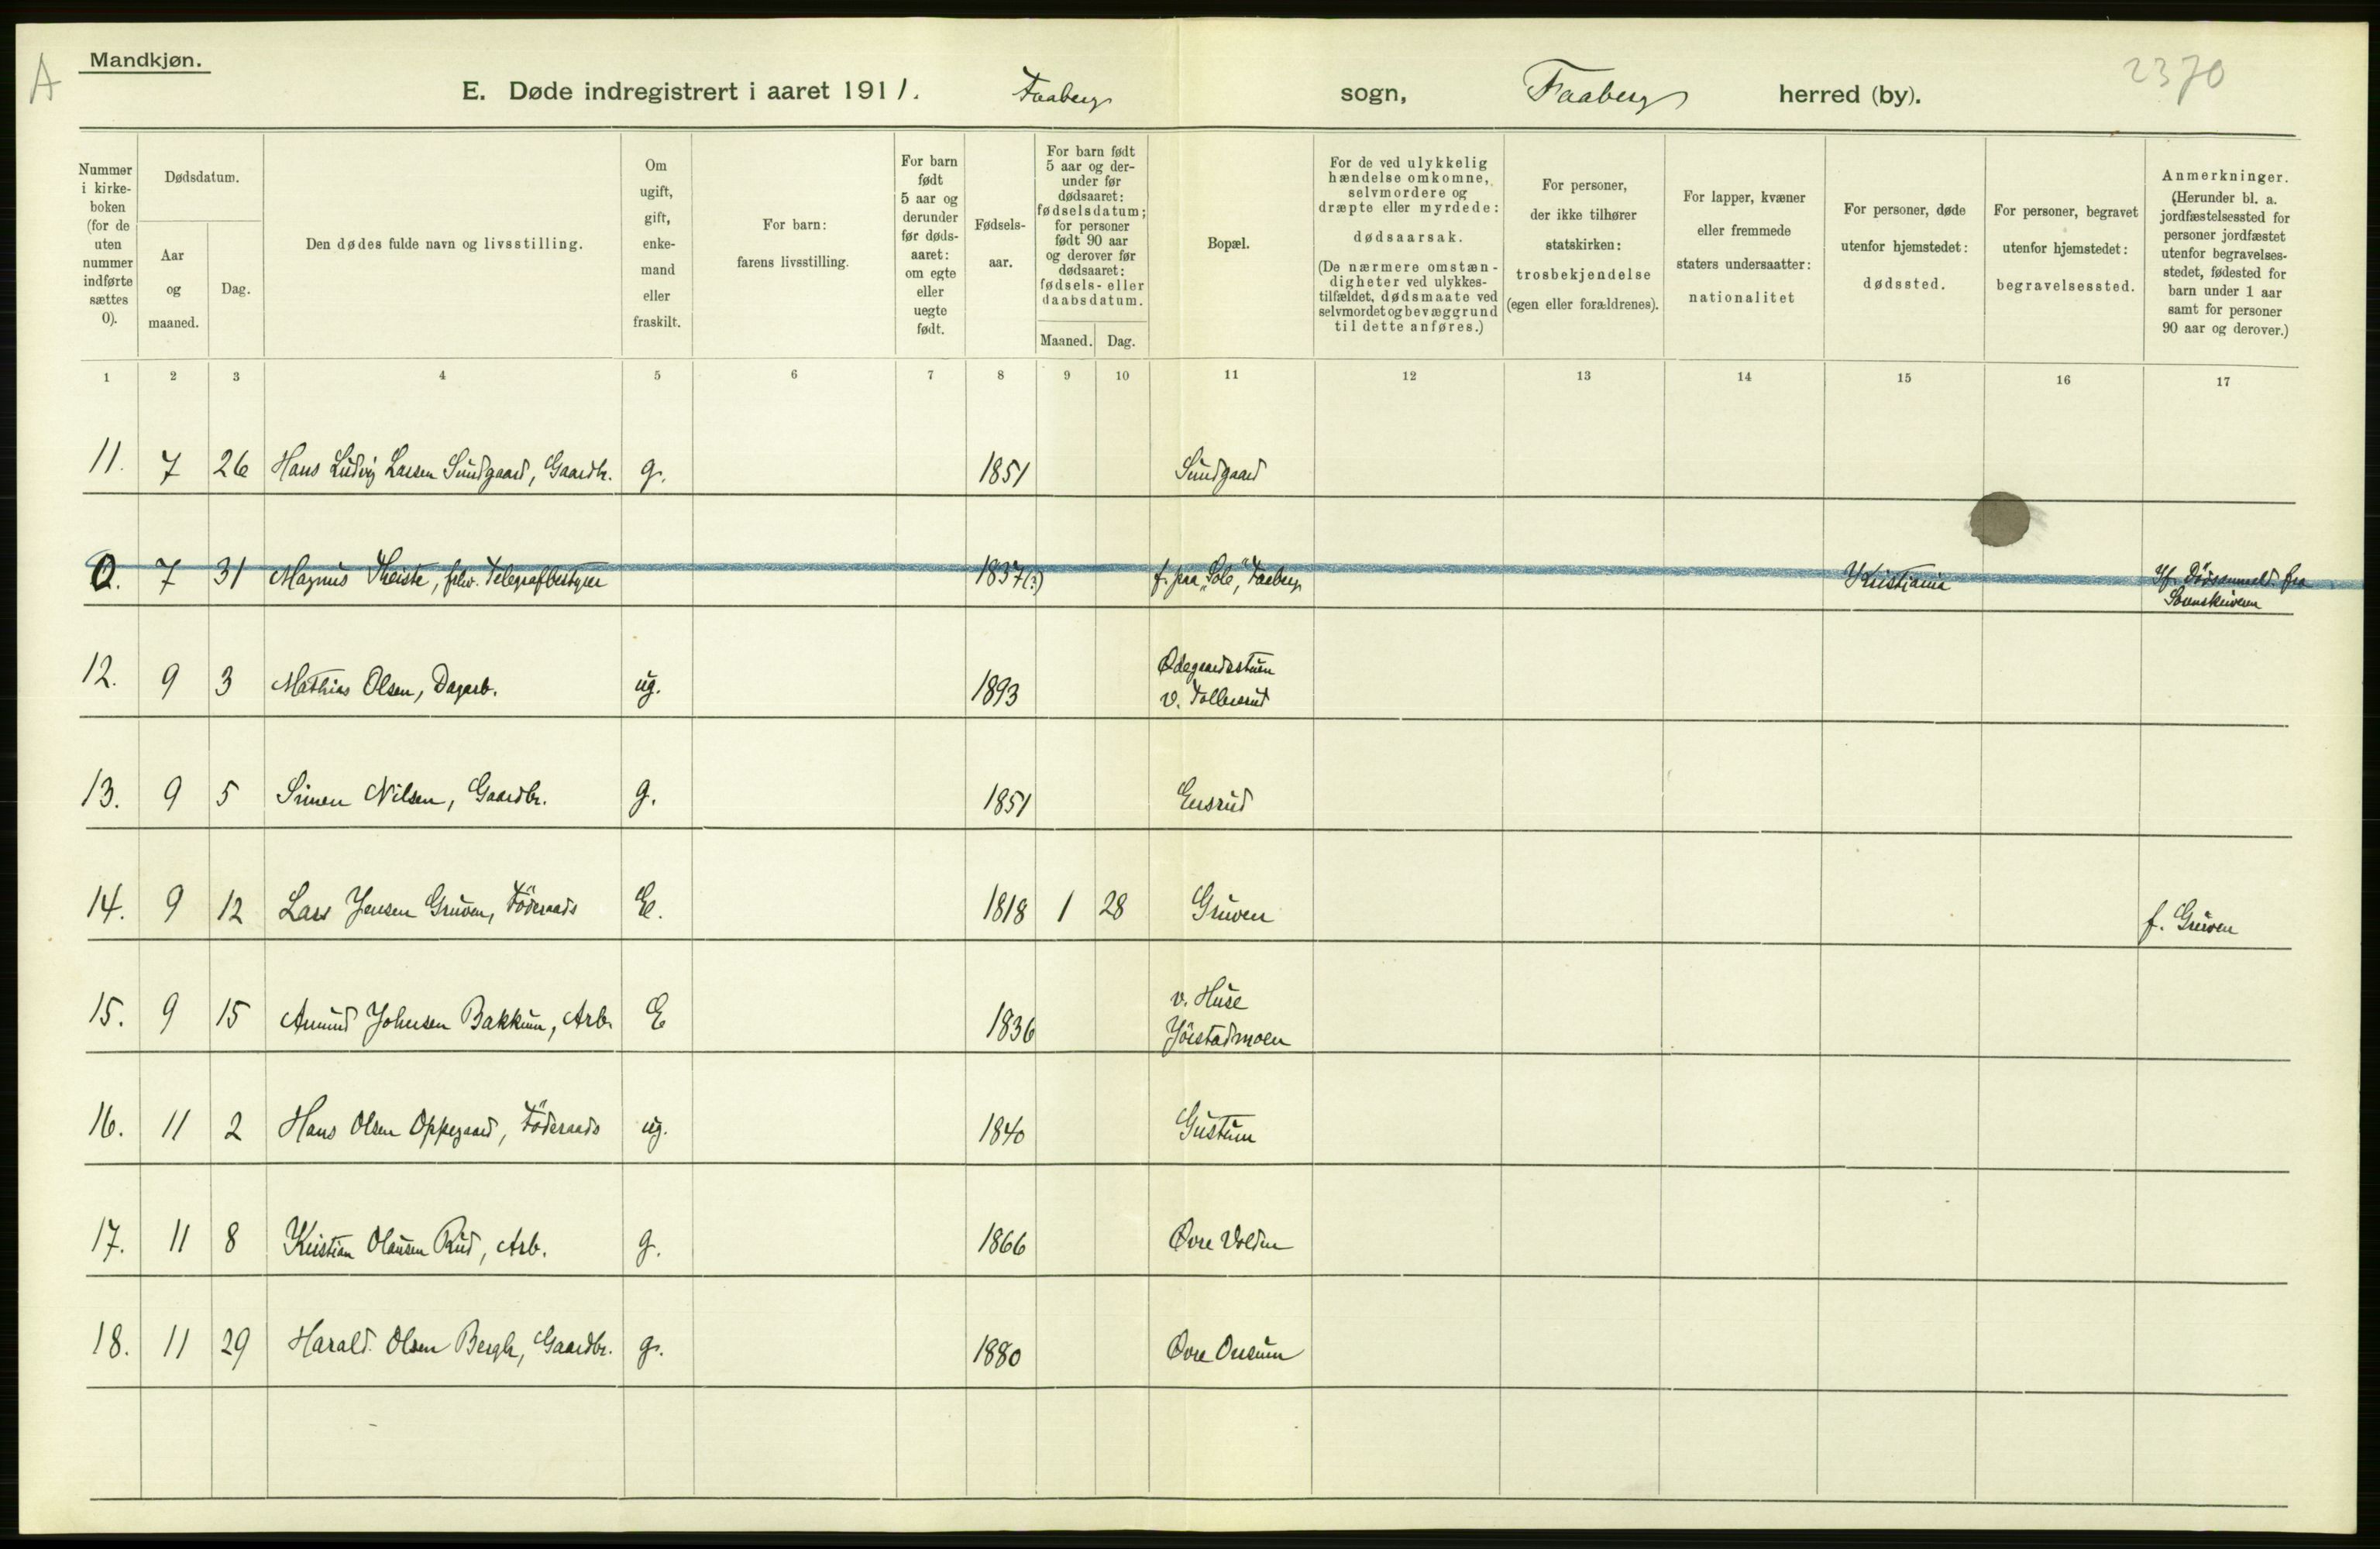 A
Mandkjøn.
2370
E. Døde indregistrert i aaret 1911. Faaberg sogn, Faaberg herred (by).
Nummer i kirke-boken (for de uten nummer indførte sættes 0).
Dødsdatum.
Aar og maaned.
Dag.
Den dødes fulde navn og livsstilling.
Om ugift, gift, enke-mand eller fraskilt.
For barn: farens livsstilling.
For barn født 5 aar og derunder før døds-aaret: om egte eller uegte født.
Fødsels-aar.
For barn født 5 aar og der-under før dødsaaret: fødselsdatum; for personer født 90 aar og derover før dødsaaret: fødsels- eller daabsdatum.
Maaned.
Dag.
Bopæl.
For de ved ulykkelig hændelse omkomne, selvmordere og dræpte eller myrdede: dødsaarsak. (De nærmere omstæn-digheter ved ulykkes-tilfældet, dødsmaate ved selvmordet og bevæggrund til dette anføres.)
For personer, der ikke tilhører statskirken: trosbekjendelse (egen eller forældrenes).
For lapper, kvæner eller fremmede staters undersaatter: nationalitet
For personer, døde utenfor hjemstedet: dødssted.
For personer, begravet utenfor hjemstedet: begravelsessted.
Anmerkninger. (Herunder bl. a. jordfæstelsessted for personer jordfæstet utenfor begravelses-stedet, fødested for barn under 1 aar samt for personer 90 aar og derover.)
1 2 3 4 5 6 7 8 9 10 11 12 13 14 15 16 17
11. 7 26 Hans Ludvig Larsen Sundgaard, Gaardbr. g. 1851 Sundgaard
0. 7 31 Magnus Theiste, Telegrafbestyrer 1837(?) f. paa "Sole," Faaberg Kristiania If. Dødsanmeld. fra
Sorenskriveren
12. 9 3 Mathias Olsen, Dagarb. ug. 1893 Ødegaardsstuen
v. Tollersrud
13. 9 5 Simen Nilsen, Gaardbr. g. 1851 Ensrud
14. 9 12 Lars Jensen Gruven, Föderaads E. 1818 1 28 Gruven f. Gruven
15. 9 15 Amund Johnsen Bakkum, Arb. E 1836 v. Huse
Jörstadmoen
16. 11 2 Hans Olsen Oppegaard, Föderaads ug. 1840 Gustum
17. 11 8 Kristian Olausen Rud, Arb. g. 1866 Øvre Volden
18. 11 29 Harald Olsen Bergh, Gaardbr. g. 1880 Øvre Onsum